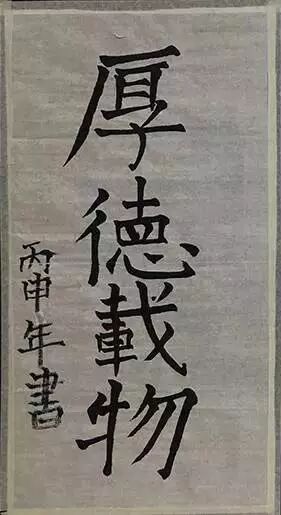 厚德載物
丙申年書